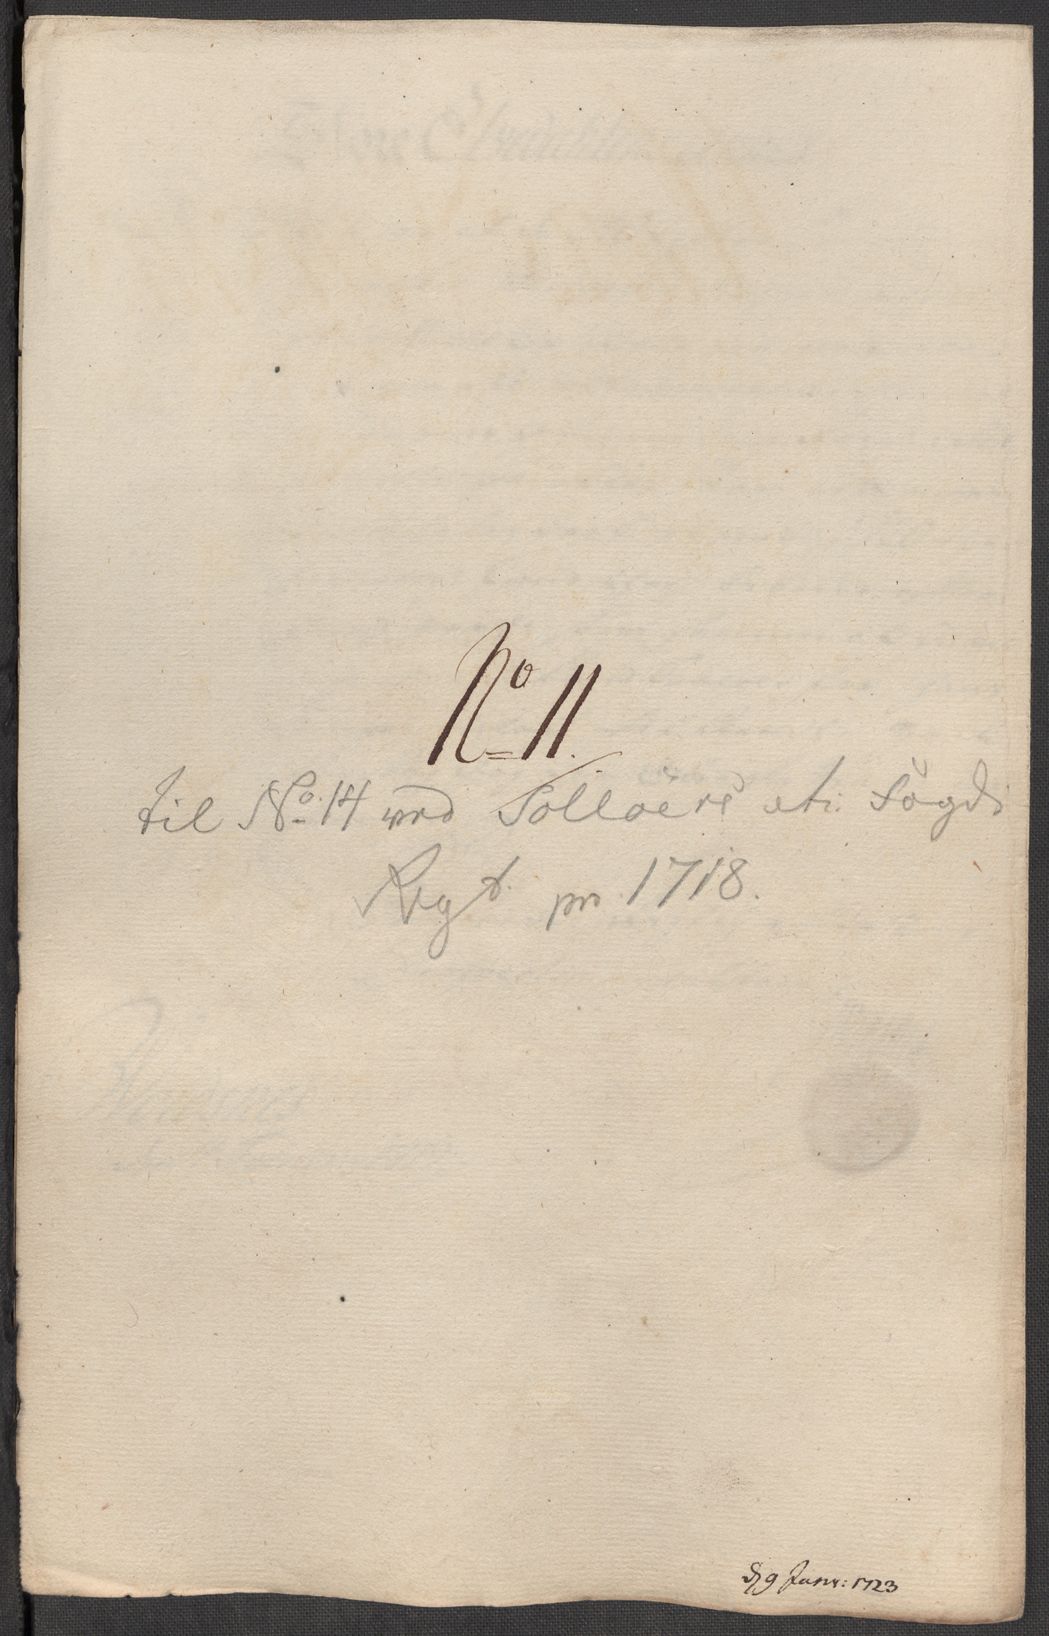 No 11.
til No. 14 ved Solloers etc: Fögdi
Regt. pro 1718.
d 9 Janv: 1723